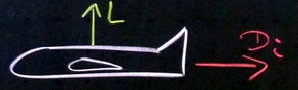 L
Di